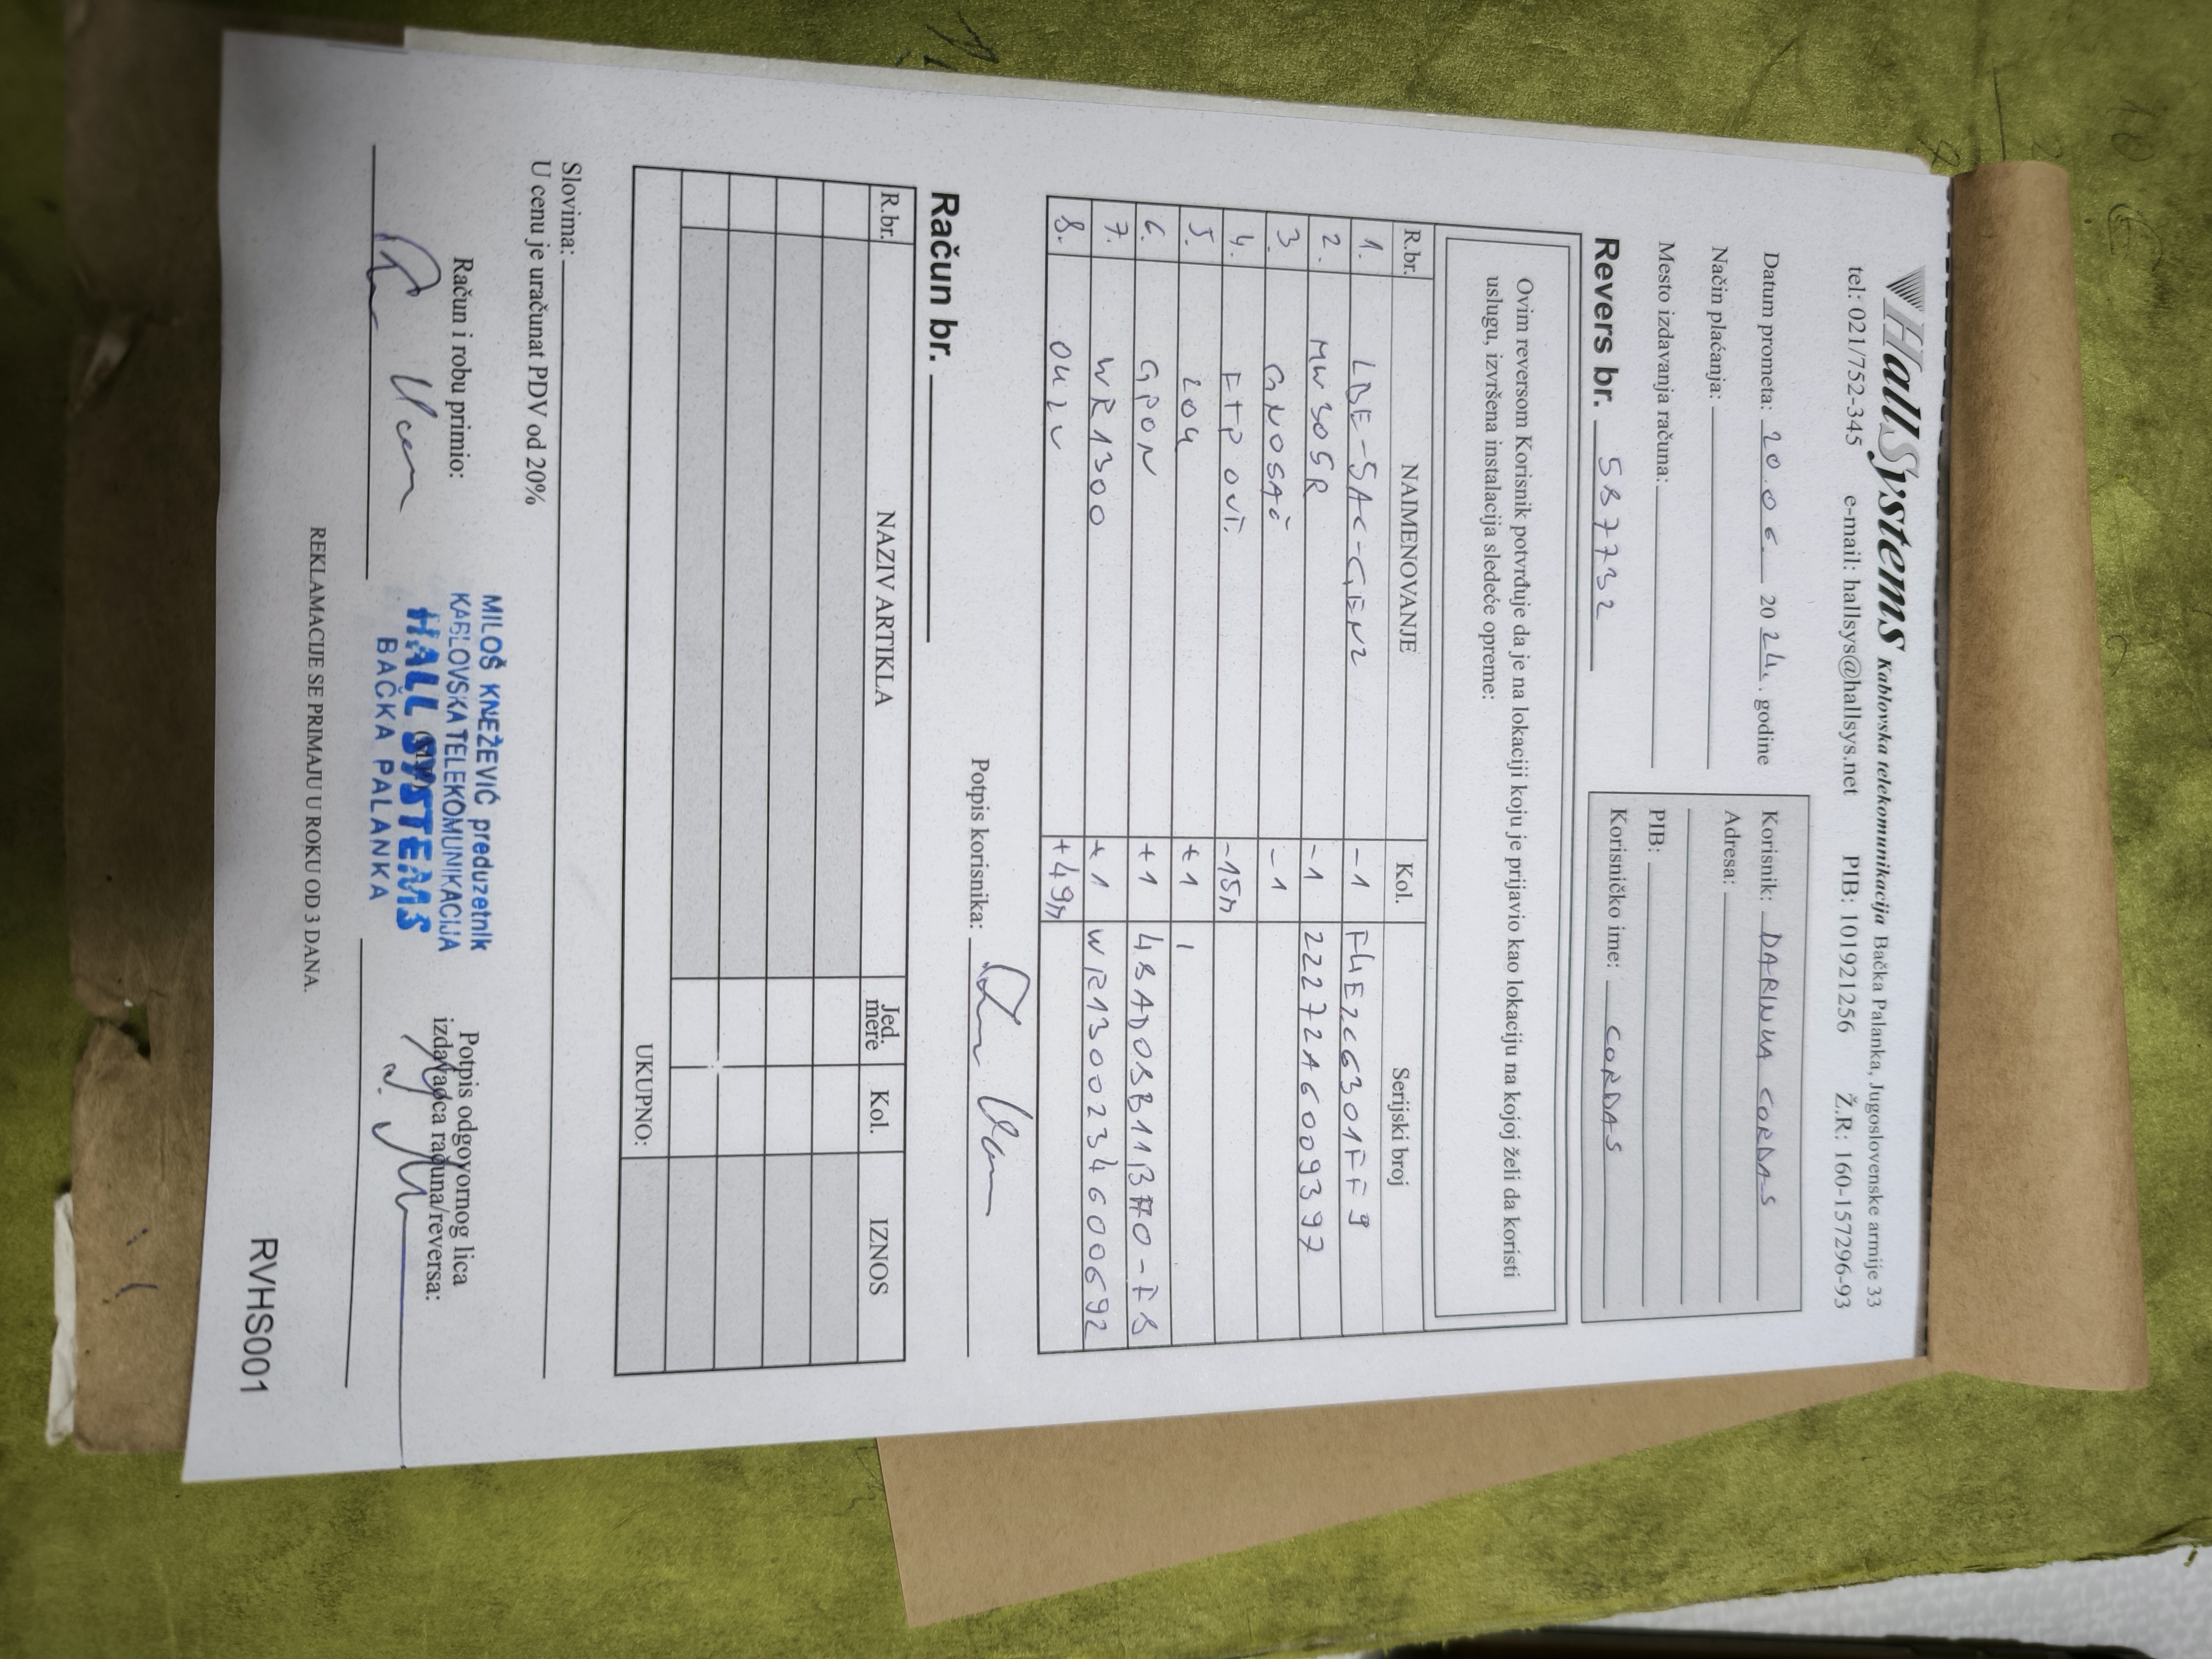 HallSystems Kablovska telekomunikacija Bačka Palanka, Jugoslovenske armije 33
tel: 021/752-345 e-mail: hallsys@hallsys.net PIB: 101921256 Ž.R: 160-157296-93
Datum prometa: 20.06. 2024. godine
Način plaćanja:
Mesto izdavanja računa:
Korisnik: DARINKA CORDAS
Adresa:
PIB:
Korisničko ime: CORDAS
Revers br. 587732
Ovim reversom Korisnik potvrđuje da je na lokaciji koju je prijavio kao lokaciju na kojoj želi da koristi
uslugu, izvršena instalacija sledeće opreme:
R.br. NAIMENOVANJE Kol. Serijski broj
1. LBE-5AC-GEN2 -1 F4E2C6301FF9
2. MW305R -1 22272A6009397
3. GNOSAČ -1
4. FTP OUT. -15m
5. ZOK +1
6. GPON +1
7. WR1300 +1 WR13000234600 6692
8. OK2V +49m
Potpis korisnika:
Račun br.
R.br. NAZIV ARTIKLA Jed. mere Kol. IZNOS
UKUPNO:
Slovima:
U cenu je uračunat PDV od 20%
Račun i robu primio:
MILOŠ KNEŽEVIĆ preduzetnik
KABLOVSKA TELEKOMUNIKACIJA
HALL SYSTEMS
BAČKA PALANKA
(M.P.)
Potpis odgovornog lica
izdavaoca računa/reversa:
REKLAMACIJE SE PRIMAJU U ROKU OD 3 DANA.
RVHS001